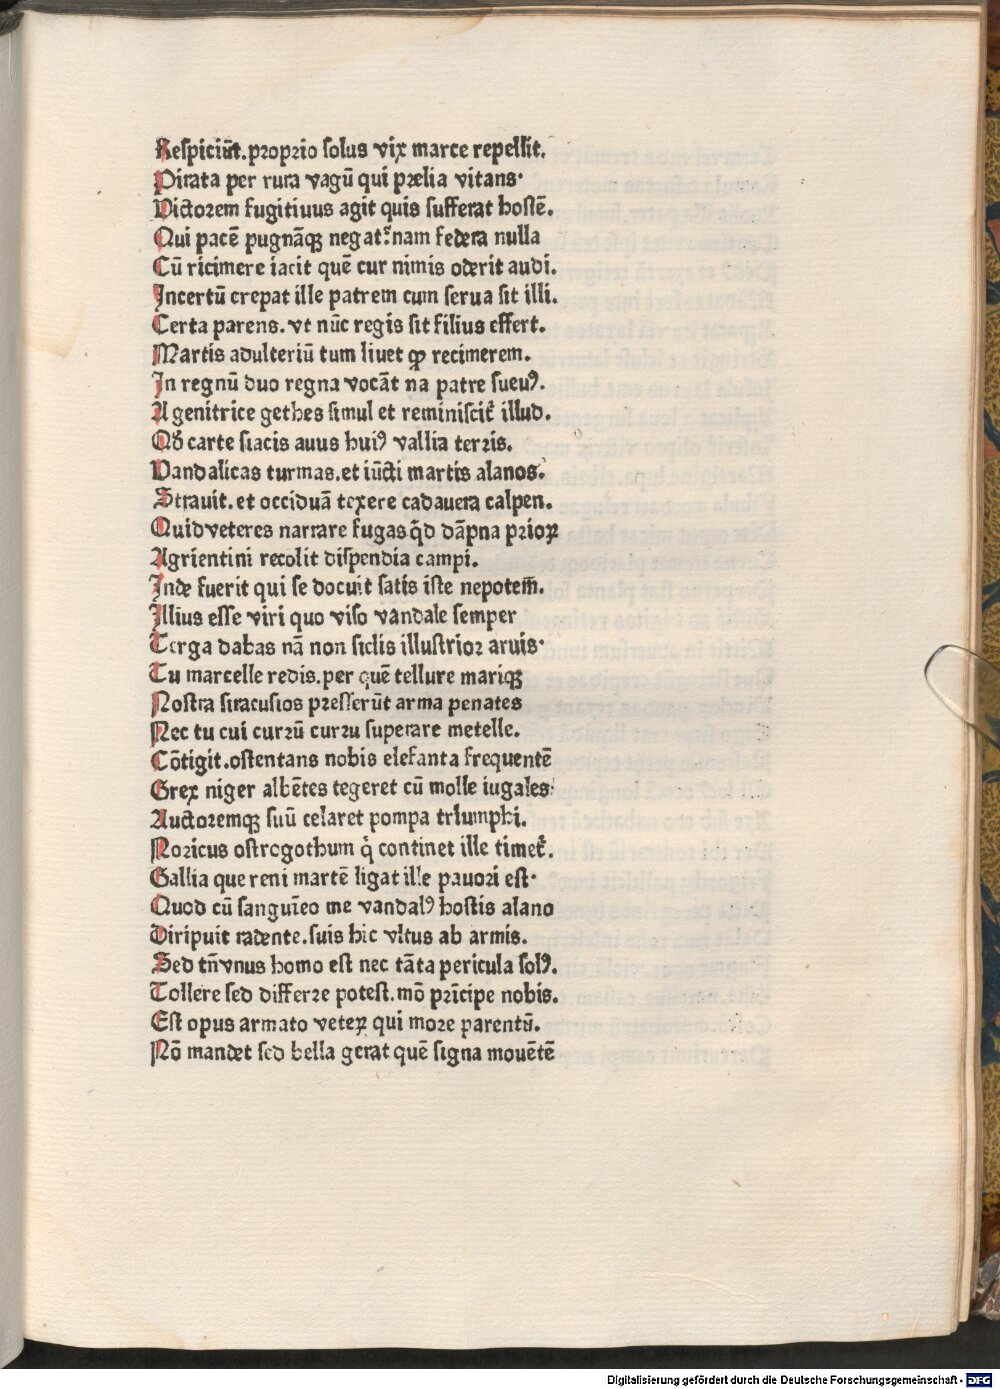 Respiciūt.proprio solus vix marce repellit.
Pirata per rura vagū qui prelia vitans·
Victorem fugitiuus agit quis sufferat hostē.
Qui pacē pugnāqꝫ negat?nam federa nulla
Cū ricimere iacit quē cur nimis oderit audi.
Incertū crepat ille patrem cum serua sit illi.
Certa parens. vt nūc regis sit filius effert.
Martis adulteriū tum liuet ꝙ recimerem.
In regnū duo regna vocāt na patre sueuꝰ.
A genitrice gethes simul et reminiscit᷑ illud.
Qđ carte siacis auus huiꝰ vallia terris.
Vandalicas turmas.et iūcti martis alanos.
Strauit.et occiduā texere cadauera calpen.
Quid veteres narrare fugas qͥd dāpna prioꝝ
Agrientini recolit dispendia campi.
Inde fuerit qui se docuit satis iste nepotem̄.
Illius esse viri quo viso vandale semper
Terga dabas nā non siclis illustrior aruis·
Tu marcelle redis.per quē tellure mariqꝫ
Nostra siracusios presserūt arma penates
Nec tu cui currū curru superare metelle.
Cōtigit.ostentans nobis elefanta frequentē
Grex niger albētes tegeret cū molle iugales:
Auctoremqꝫ suū celaret pompa triumphi.
Noricus ostrogothum qͥ continet ille timet᷑.
Gallia que reni martē ligat ille pauori est·
Quod cū sanguīeo me vandalꝰ hostis alano
Diripuit radente.suis hic vltus ab armis.
Sed tn̄ vnus homo est nec tāta pericula solꝰ.
Tollere sed differre potest.mō prīcipe nobis.
Est opus armato veteꝝ qui more parentū.
Nō mandet sed bella gerat quē signa mouētē
Digitalisierung gefördert durch die Deutsche Forschungsgemeinschaft - DFG